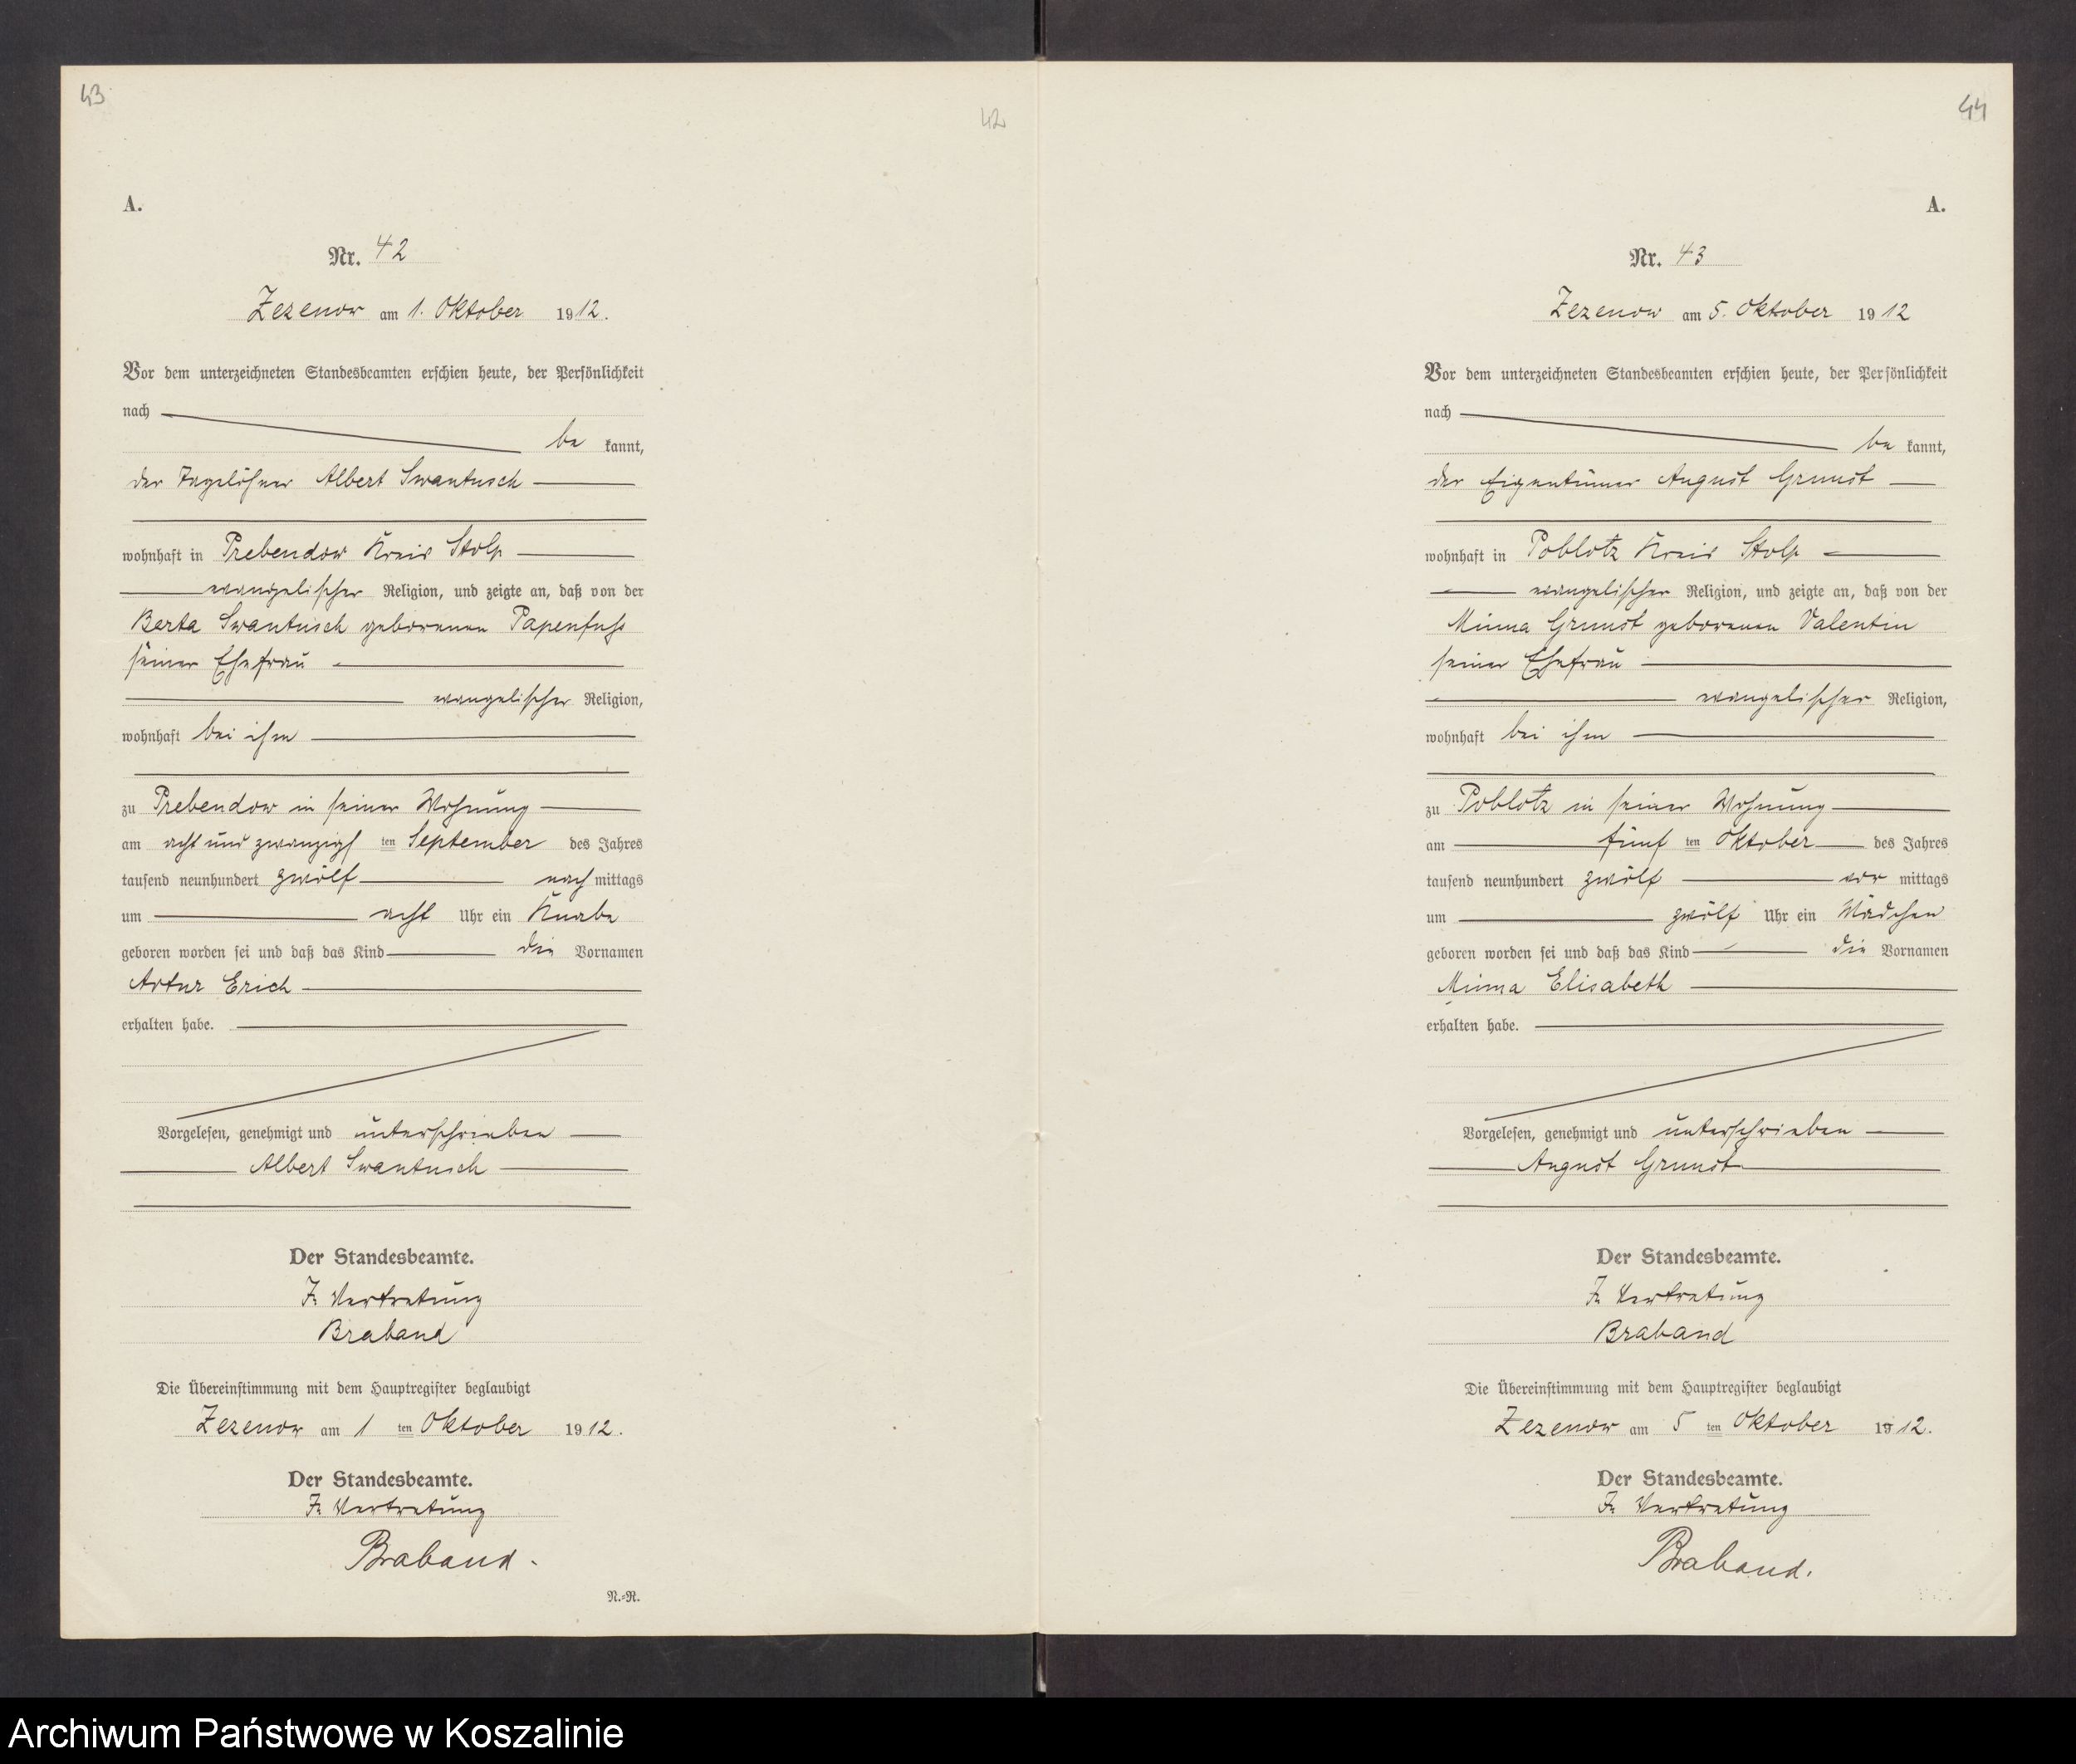 43
42
A.
Nr. 42
Zezenow am 1. Oktober 1912.
Vor dem unterzeichneten Standesbeamten erschien heute, der Persönlichkeit
nach
be kannt,
der Tagelöhner Albert Swantusch
wohnhaft in Prebendow Kreis Stolp
evangelischer Religion, und zeigte an, daß von der
Berta Swantusch geborenen Papenfuß
seiner Ehefrau
evangelischer Religion,
wohnhaft bei ihm
zu Prebendow in seiner Wohnung
am acht und zwanzigs ten September des Jahres
tausend neunhundert zwölf nach mittags
um acht Uhr ein Knabe
geboren worden sei und daß das Kind die Vornamen
Artur Erich
erhalten habe.
Vorgelesen, genehmigt und unterschrieben
Albert Swantusch
Der Standesbeamte.
In Vertretung
Braband
Die Übereinstimmung mit dem Hauptregister beglaubigt
Zezenow am 1 ten Oktober 1912.
Der Standesbeamte.
In Vertretung
Braband.
N.-R.
44
A.
Nr. 43
Zezenow am 5. Oktober 1912
Vor dem unterzeichneten Standesbeamten erschien heute, der Persönlichkeit
nach
be kannt,
der Eigentümer August Grunst
wohnhaft in Poblotz Kreis Stolp
evangelischer Religion, und zeigte an, daß von der
Minna Grunst geborenen Valentin
seiner Ehefrau
evangelischer Religion,
wohnhaft bei ihm
zu Poblotz in seiner Wohnung
am fünf ten Oktober des Jahres
tausend neunhundert zwölf vor mittags
um zwölf Uhr ein Mädchen
geboren worden sei und daß das Kind die Vornamen
Minna Elisabeth
erhalten habe.
Vorgelesen, genehmigt und unterschrieben
August Grunst
Der Standesbeamte.
In Vertretung
Braband
Die Übereinstimmung mit dem Hauptregister beglaubigt
Zezenow am 5 ten Oktober 1912.
Der Standesbeamte.
In Vertretung
Braband.
Archiwum Państwowe w Koszalinie